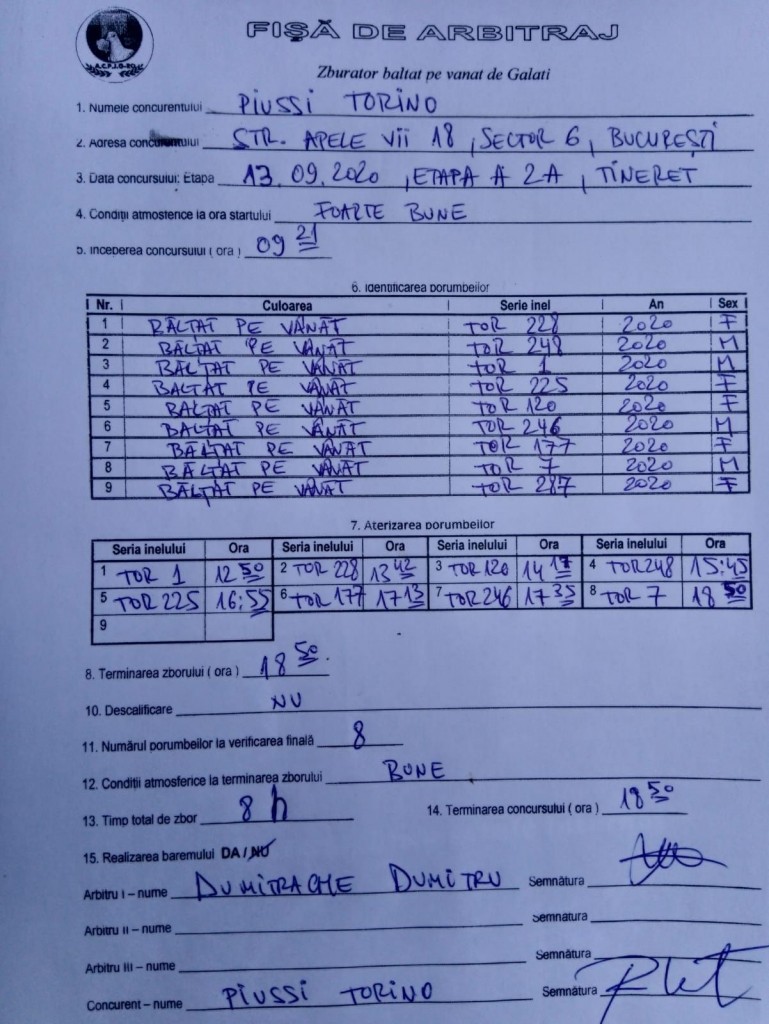 A.C.P.J.G.-RO
FIȘĂ DE ARBITRAJ
Zburator baltat pe vanat de Galati
1. Numele concurentului PIUSSI TORINO
2. Adresa concurentului STR. APELE VII 18, SECTOR 6, BUCUREȘTI
3. Data concursului; Etapa 13.09.2020, ETAPA A 2A, TINERET
4. Condiții atmosferice la ora startului FOARTE BUNE
5. Inceperea concursului ( ora ) 09 21
6. Identificarea porumbeilor
Nr. Culoarea Serie inel An Sex
1 BĂLȚAT PE VÂNĂT TOR 228 2020 F
2 BĂLȚAT PE VÂNĂT TOR 248 2020 M
3 BĂLȚAT PE VÂNĂT TOR 1 2020 M
4 BĂLȚAT PE VÂNĂT TOR 225 2020 F
5 BĂLȚAT PE VÂNĂT TOR 120 2020 F
6 BĂLȚAT PE VÂNĂT TOR 246 2020 M
7 BĂLȚAT PE VÂNĂT TOR 177 2020 F
8 BĂLȚAT PE VÂNĂT TOR 7 2020 M
9 BĂLȚAT PE VÂNĂT TOR 2020 F
7. Aterizarea porumbeilor
Seria inelului Ora Seria inelului Ora Seria inelului Ora Seria inelului Ora
1 TOR 1 12 50 2 TOR 228 13 42 3 TOR 120 14 17 4 TOR 248 15:45
5 TOR 225 16:55 6 TOR 177 17 13 7 TOR 246 17 35 8 TOR 7 18 50
9
8. Terminarea zborului ( ora ) 18 50.
10. Descalificare NU
11. Numărul porumbeilor la verificarea finală 8
12. Condiții atmosferice la terminarea zborului BUNE
13. Timp total de zbor 8 h 14. Terminarea concursului ( ora ) 18 50
15. Realizarea baremului DA / NU
Arbitru I – nume DUMITRACHE DUMITRU Semnătura
Arbitru II – nume Semnatura
Arbitru III – nume Semnătura
Concurent – nume PIUSSI TORINO Semnătura